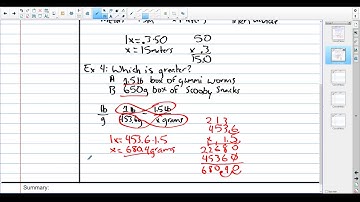 1x = .3·50
x = 15 meters
50
x .3
15.0
Ex 4: Which is greater?
A 1.5lb box of gummi worms
B 650g box of Scooby Snacks
lb 1 lb 1.5lb
g 453.6g x grams
1x = 453.6·1.5
x = 680.4 grams
2 1 3
453.6
x 1.5
22680
45360
680.40
Summary: